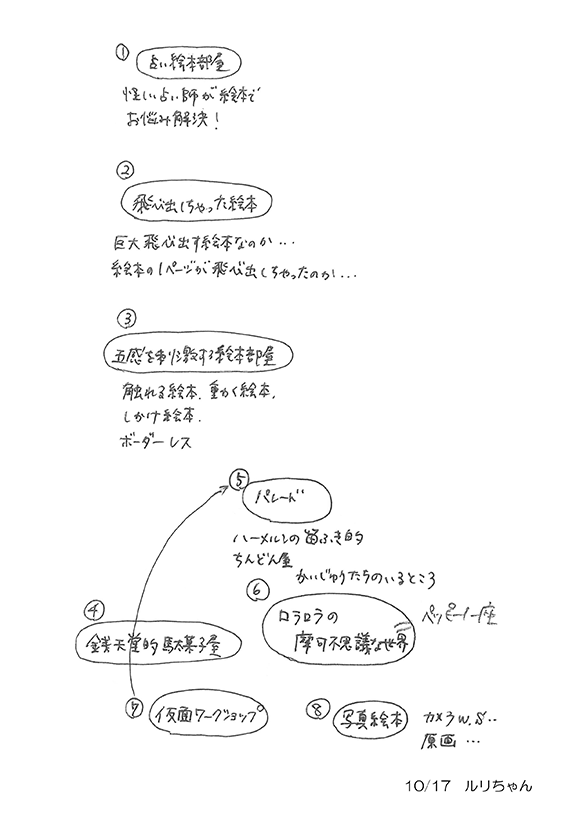 ① 占い絵本部屋
怪しい占い師が絵本で
お悩み解決！
② 飛び出しちゃった絵本
巨大飛び出す絵本なのか…
絵本の1ページが飛び出しちゃったのか…
③
五感を刺激する絵本部屋
触れる絵本、動く絵本、
しかけ絵本、
ボーダーレス
⑤ パレード
ハーメルンの笛ふき的
ちんどん屋
かいじゅうたちのいるところ
⑥ ロラロラの
摩可不思議な世界
④
銭天堂的駄菓子屋
⑦ 仮面ワークショップ
⑧ 写真絵本
カメラw.s..
原画…
10/17 ルリちゃん